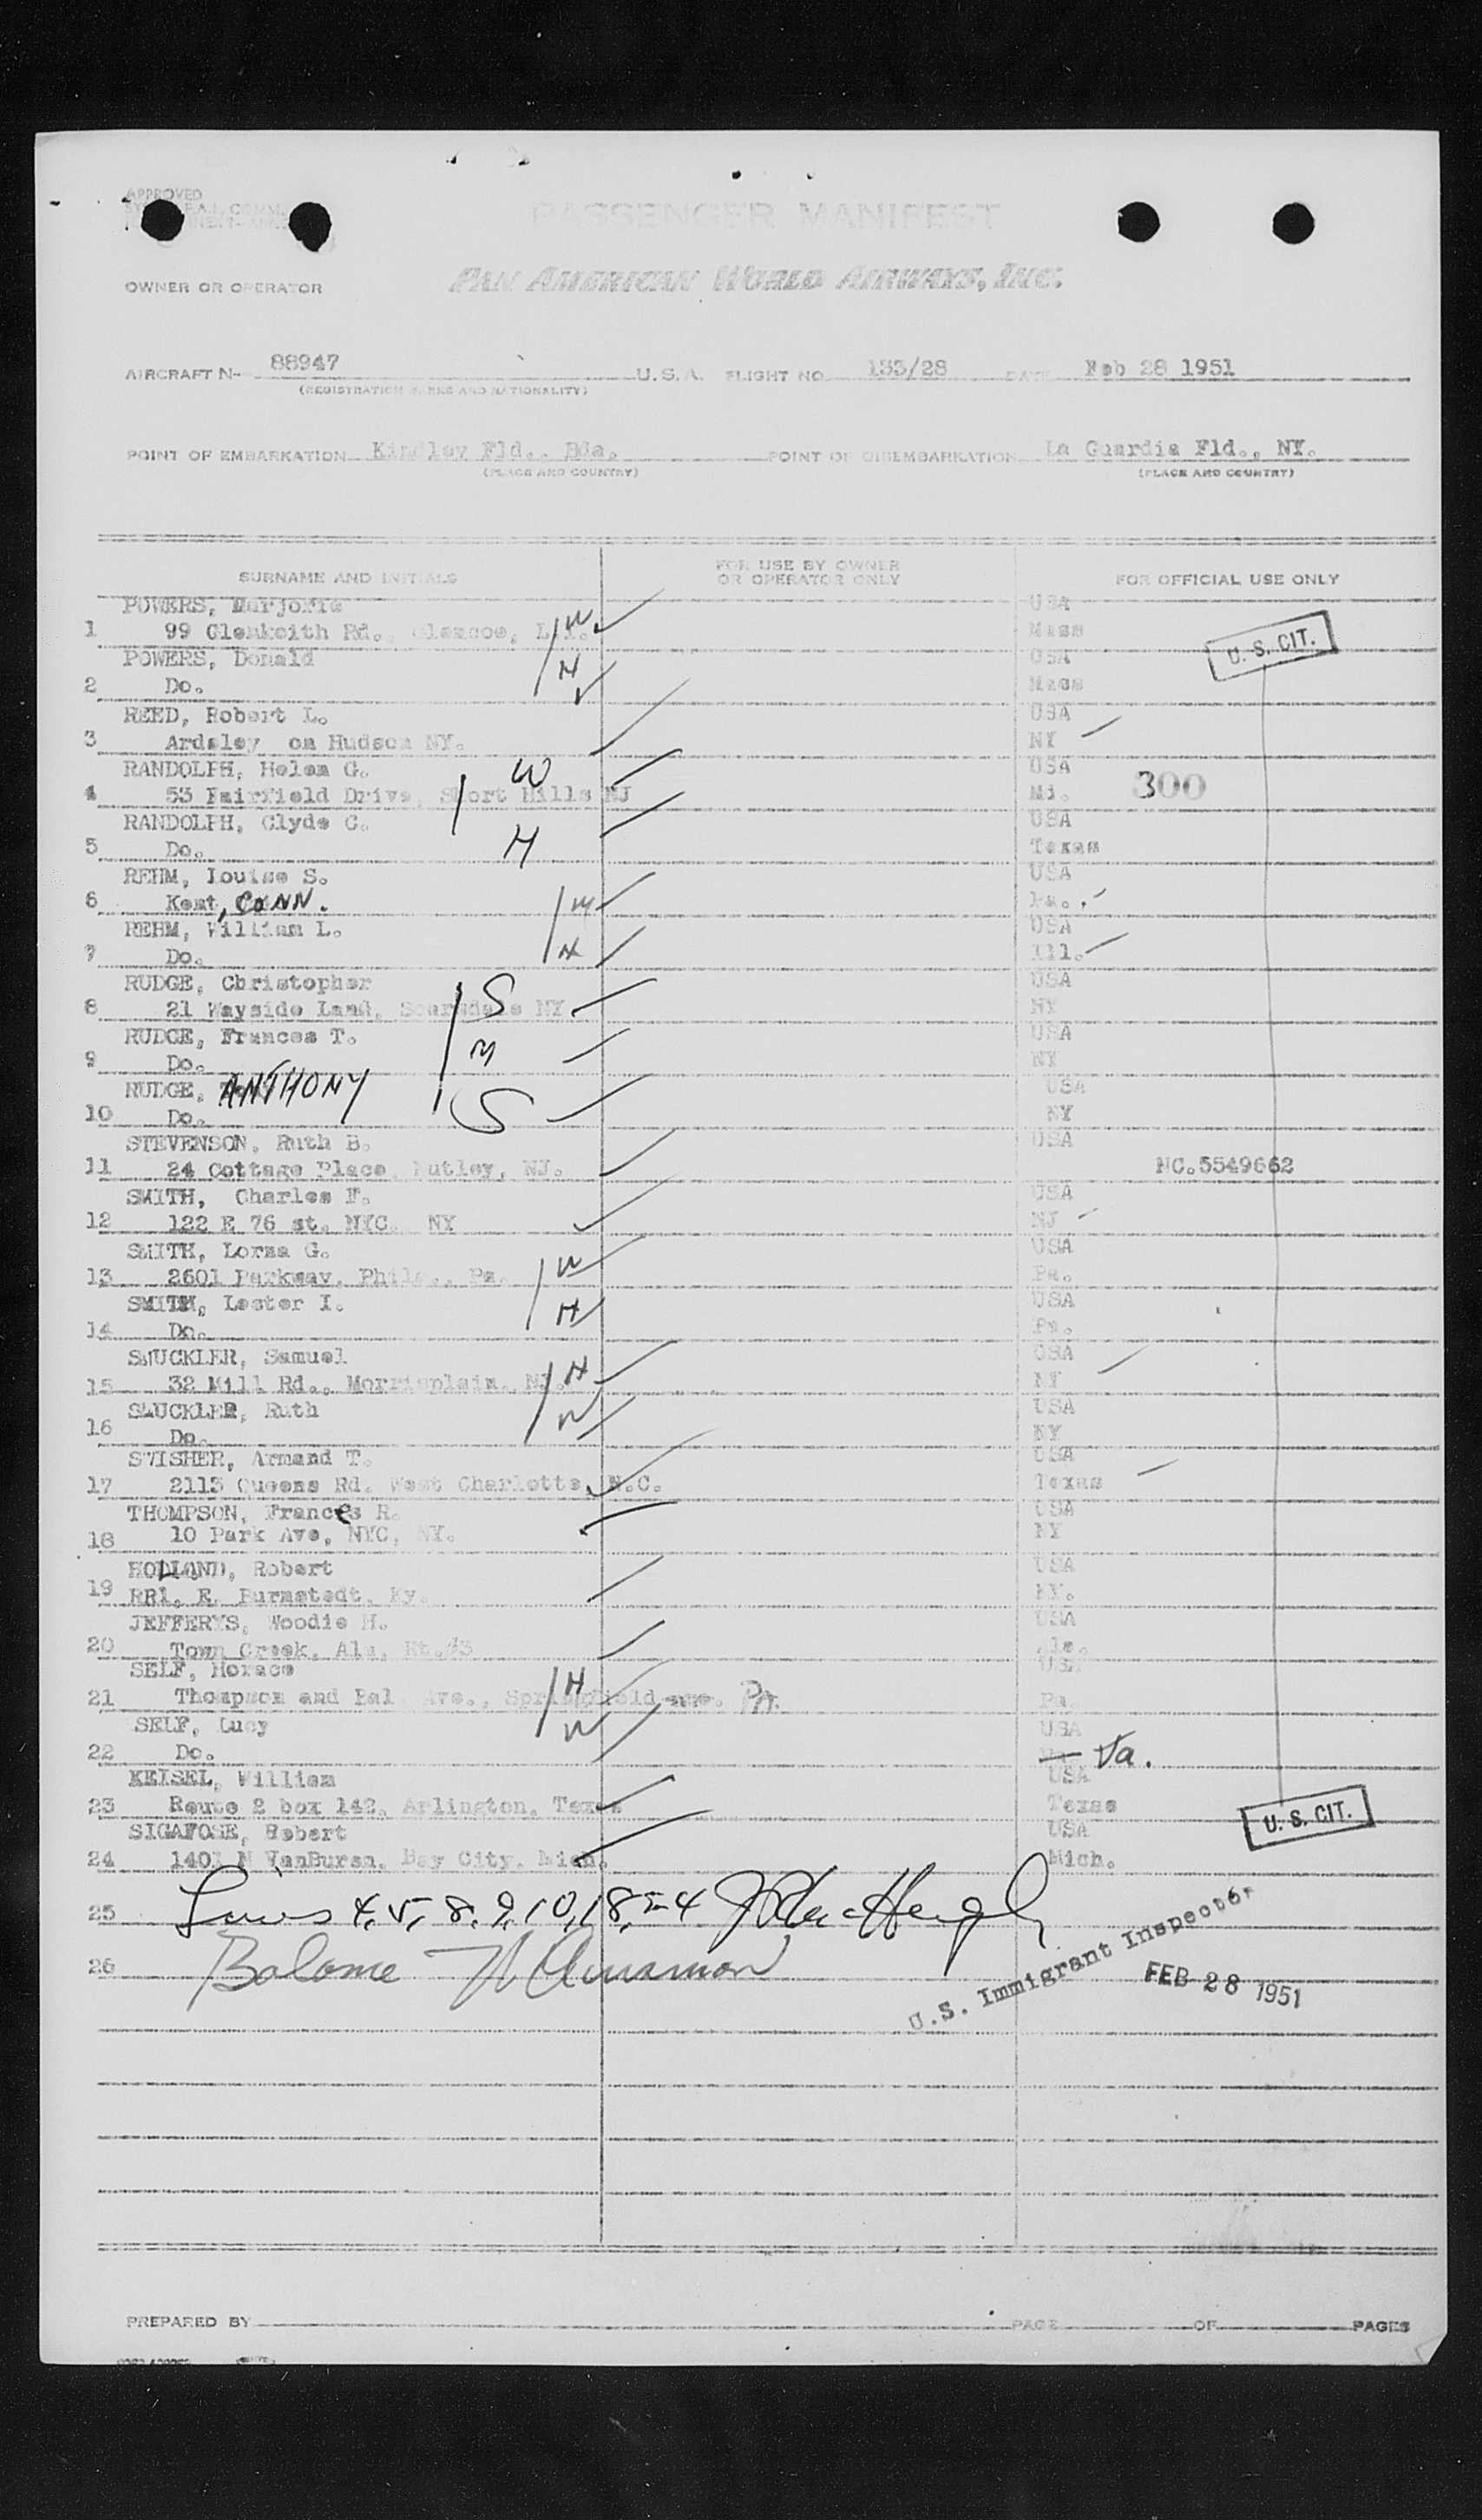 APPROVED
PASSENGER MANIFEST
OWNER OR OPERATOR PAN AMERICAN WORLD AIRWAYS, INC.
AIRCRAFT N- 88947 U.S.A. FLIGHT NO. 153/28 DATE Feb 28 1951
(REGISTRATION MARKS AND NATIONALITY)
POINT OF EMBARKATION Kindley Fld., Bda. POINT OF DISEMBARKATION La Guardia Fld., NY.
(PLACE AND COUNTRY) (PLACE AND COUNTRY)
SURNAME AND INITIALS FOR USE BY OWNER OR OPERATOR ONLY FOR OFFICIAL USE ONLY
POWERS, Marjorie USA
1 99 Glenkeith Rd., L.I. W Mass U. S. CIT.
POWERS, Donald USA
2 Do. H Mass
REED, Robert L. USA
3 Ardsley on Hudson NY. NY
RANDOLPH, Helen G. W USA
4 53 Fairfield Drive, Short Hills NJ 300
RANDOLPH, Clyde C. USA
5 Do. H Texas
REHM, Louise S. USA
6 Kent, CONN. W Pa.
REHM, William L. USA
7 Do. H Ill.
RUDGE, Christopher USA
8 21 Wayside Scarsdale NY. S NY
RUDGE, Frances T. USA
9 Do. M NY
RUDGE, ANTHONY USA
10 Do. S NY
STEVENSON, Ruth B. USA
11 24 Cottage Place, Nutley, NJ. NC.5549662
SMITH, Charles F. USA
12 122 E 76 st. NYC. NY NJ
SMITH, Lorna G. USA
13 2601 Parkway, Phila., Pa. W Pa.
SMITH, Lester I. USA
14 Do. H Pa.
SMUCKLER, Samuel USA
15 32 Mill Rd., Morrisplain, NJ. H NY
SMUCKLER, Ruth USA
16 Do. W NY
SWISHER, Armand T. USA
17 2113 Queens Rd. West Charlotte, N.C. Texas
THOMPSON, Frances R. USA
18 10 Park Ave, NYC, NY. NY
HOLLAND, Robert USA
19 RR1, E. Burnstedt, Ky. KY.
JEFFERYS, Woodie H. USA
20 Town Creek, Ala, Rt.#3 Ala.
SELF, Horace USA
21 Thompson and Bal. Ave., Springfield Pa. H Pa.
SELF, Lucy USA
22 Do. W Va.
KEISEL, William USA
23 Route 2 box 142, Arlington, Texas Texas
SIGAFOSE, Robert USA U. S. CIT.
24 1401 N VanBuren, Bay City, Mich. Mich.
25 Lines 4, 5, 8, 9, 10, 18, 24
26 Balance
U.S. Immigrant Inspector
FEB 28 1951
PREPARED BY PAGE OF PAGES